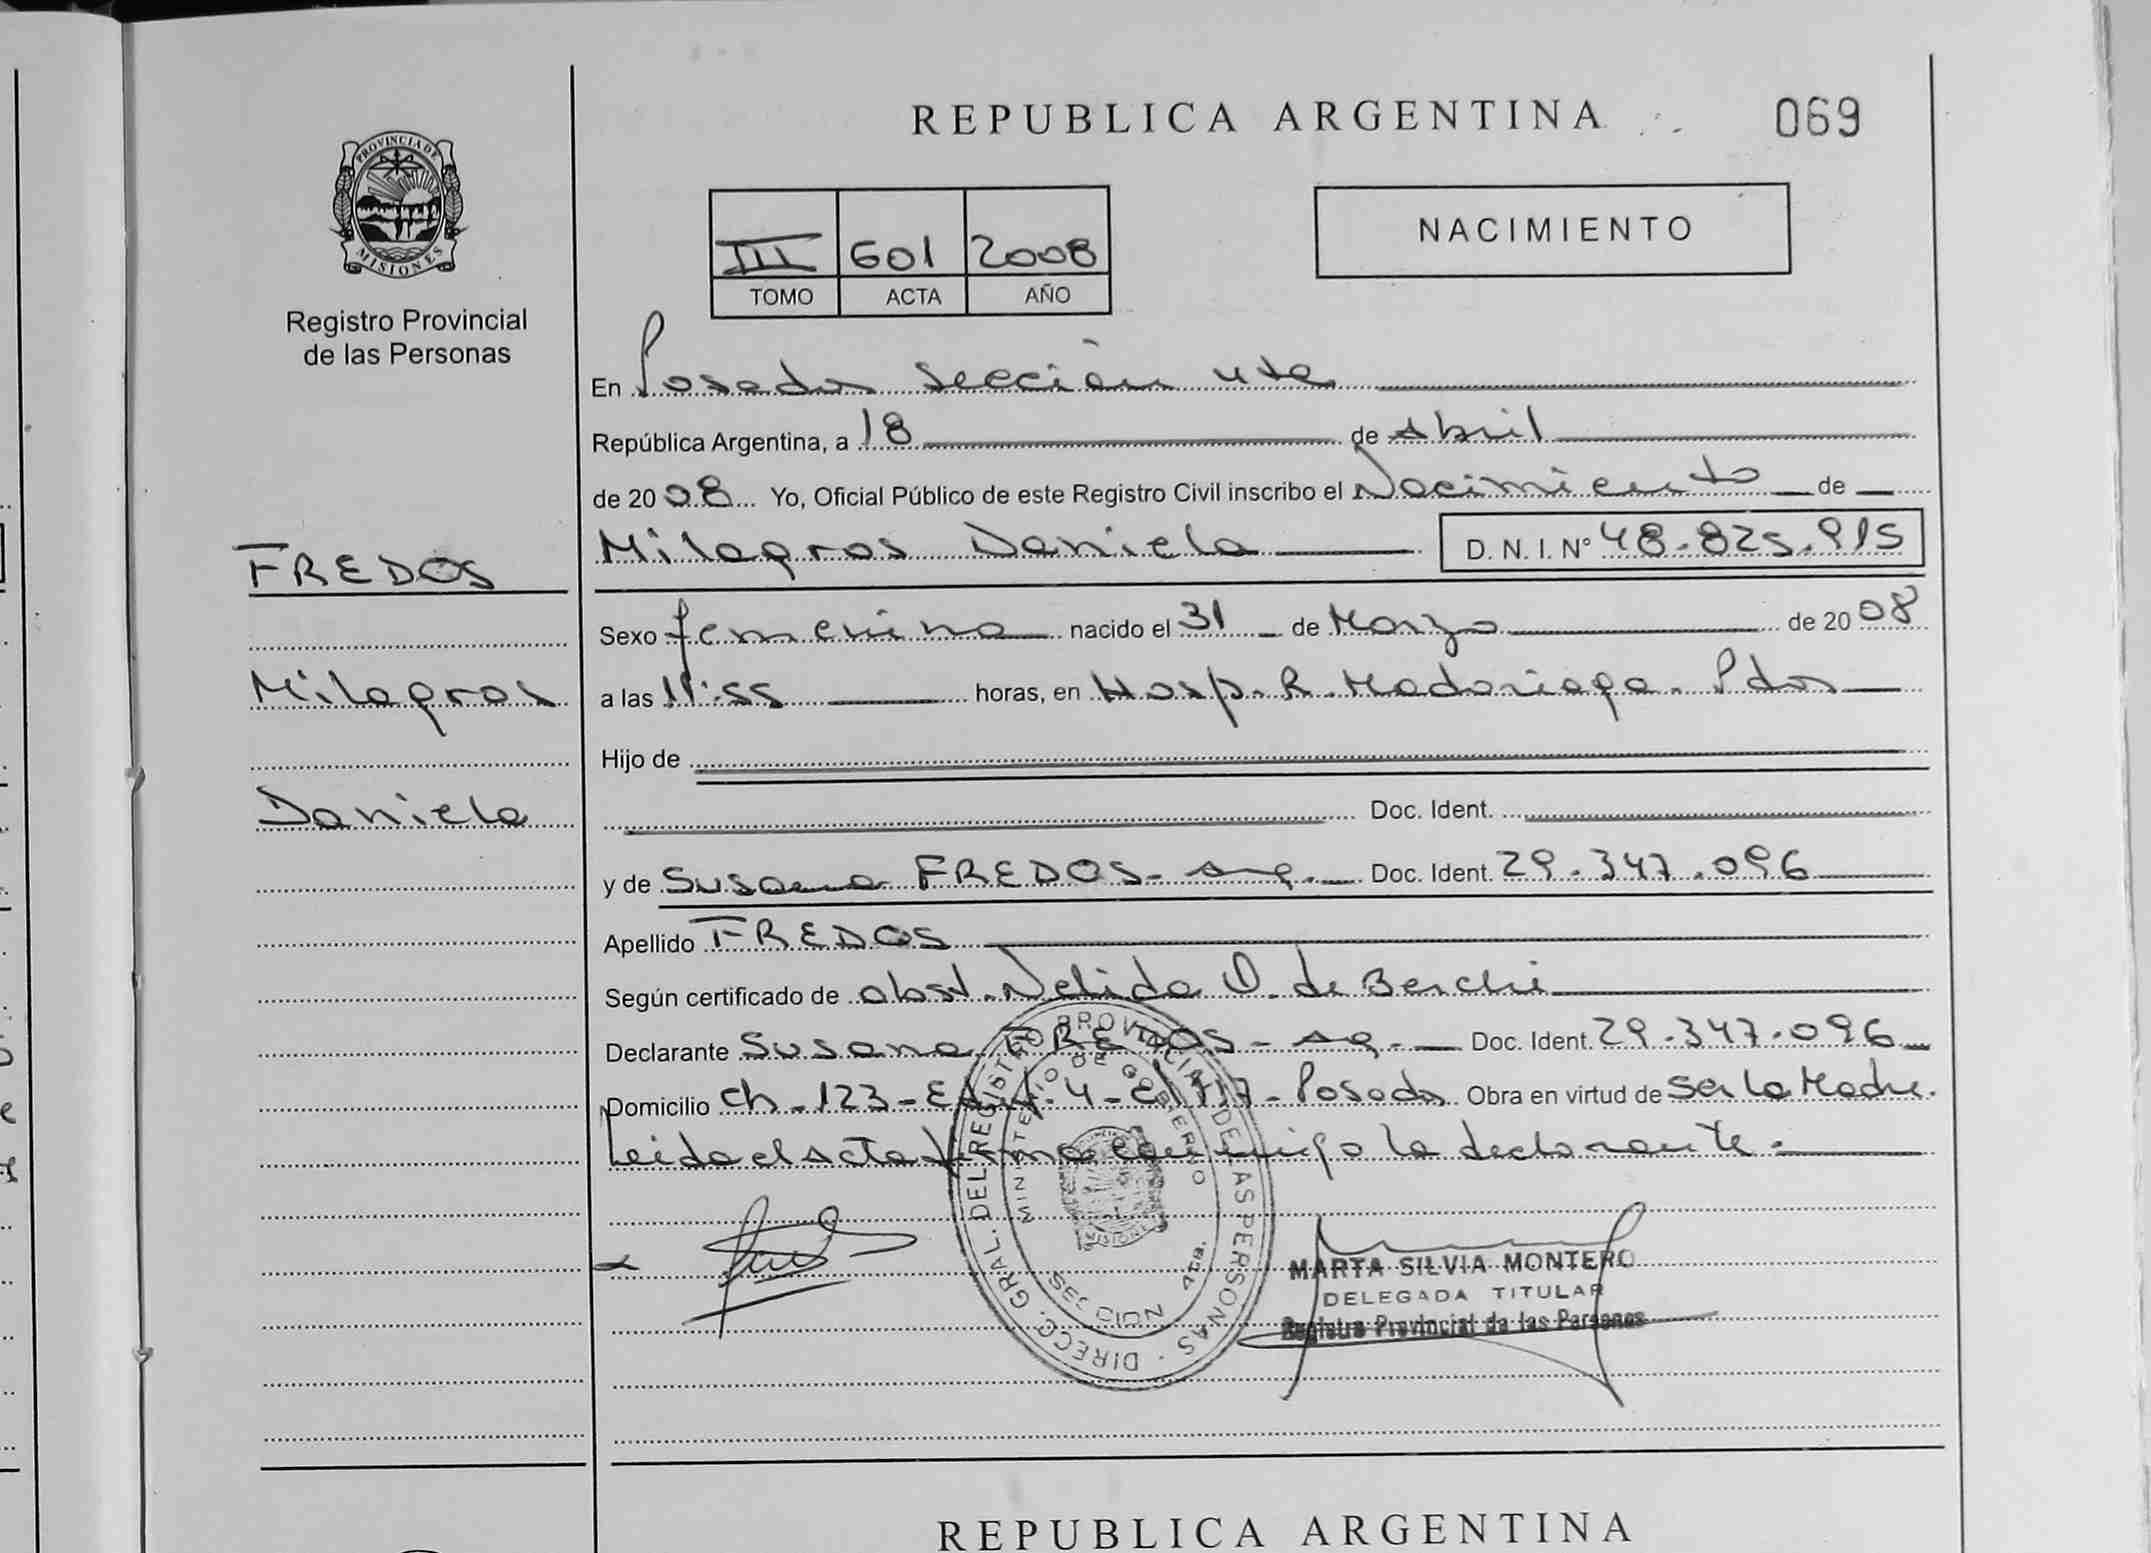 REPUBLICA ARGENTINA
069
PROVINCIA DE
MISIONES
Registro Provincial
de las Personas
III 601 2008
TOMO ACTA AÑO
NACIMIENTO
En Posadas Sección 4ta
República Argentina, a 18 de Abril
de 2008 Yo, Oficial Público de este Registro Civil inscribo el Nacimiento de
FREDOS
Milagros
Daniela
Milagros Daniela D. N. I. N° 48.825.915
Sexo femenino nacido el 31 de Marzo de 2008
a las 11:55 horas, en Hosp. R. Madariaga. Pdas
Hijo de
Doc. Ident.
y de Susana FREDOS - Arg. Doc. Ident. 29.347.096
Apellido FREDOS
Según certificado de obst. Nelida D. de Berchi
Declarante Susana FREDOS - Ag. Doc. Ident. 29.347.096
Domicilio Ch - 123 - Edif. 4 - - Posadas Obra en virtud de ser la Madre.
Leida el Acta firma conmigo la declarante.
DIRECC. GRAL. DEL REGISTRO PROVINCIAL DE LAS PERSONAS
MINISTERIO DE GOBIERNO
MISIONES
SECCION 4ta.
MARTA SILVIA MONTERO
DELEGADA TITULAR
Registro Provincial de las Personas
REPUBLICA ARGENTINA